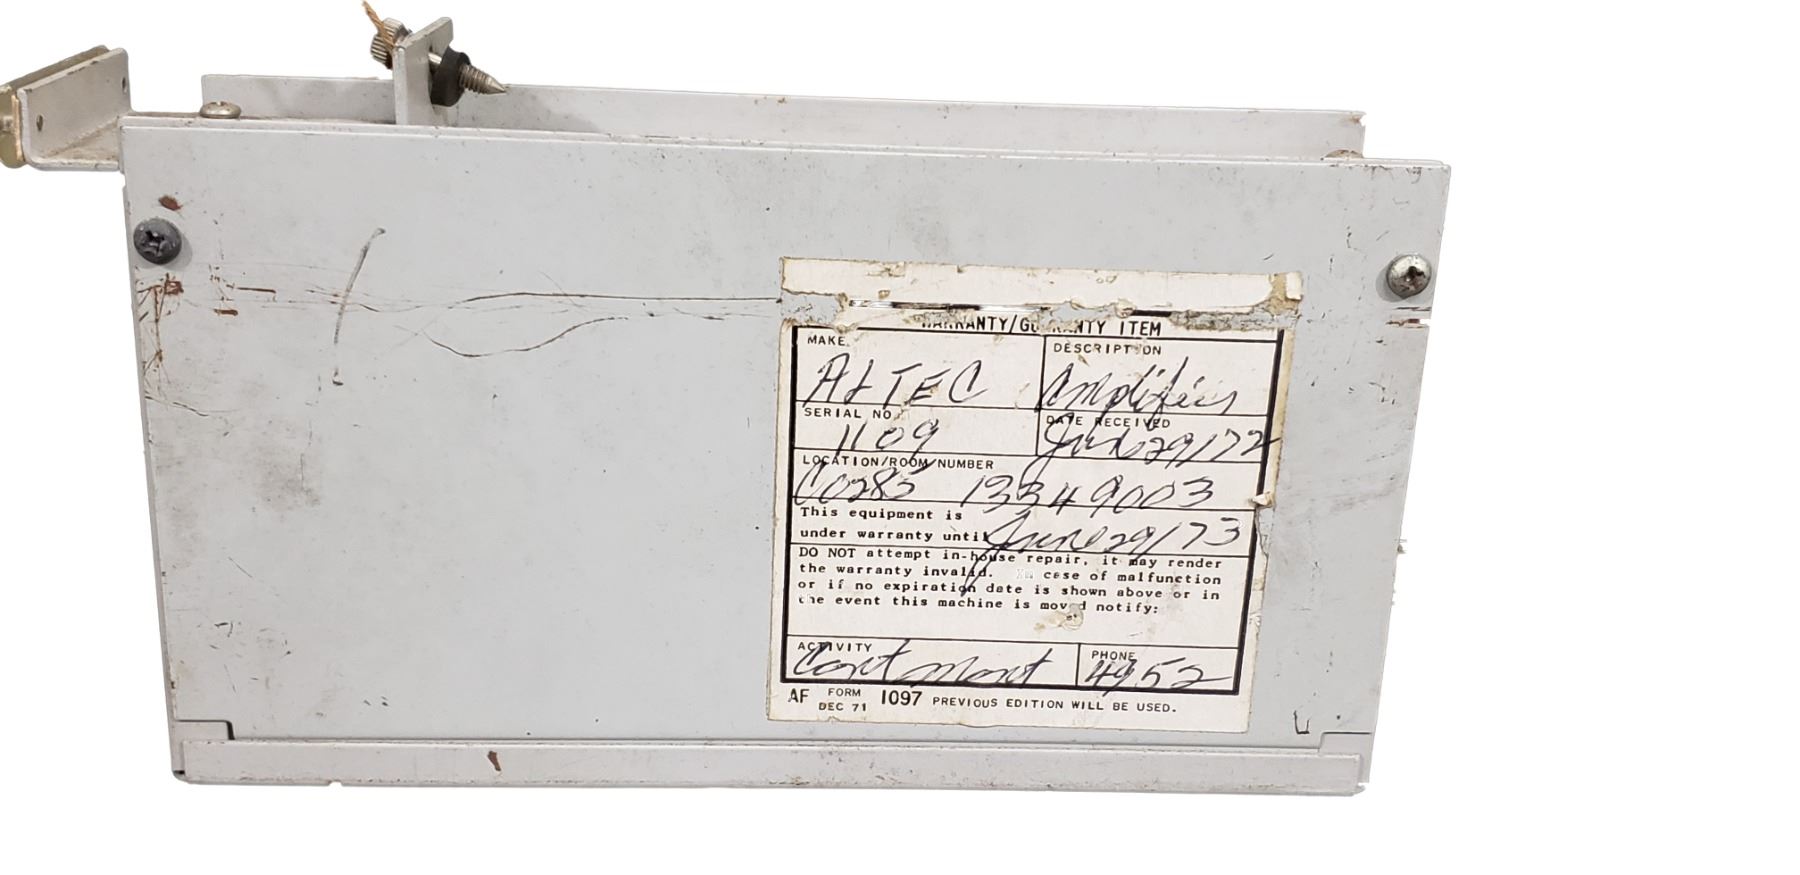 WARRANTY/GUARANTY ITEM
MAKE
DESCRIPTION
ALTEC
Amplifier
SERIAL NO.
DATE RECEIVED
1109
June 29/72
LOCATION/ROOM/NUMBER
C0285 13349003
This equipment is
under warranty until June 29/73
DO NOT attempt in-house repair, it may render
the warranty invalid. In case of malfunction
or if no expiration date is shown above or in
the event this machine is moved notify:
ACTIVITY
PHONE
Cont Mont
4952
AF FORM 1097 PREVIOUS EDITION WILL BE USED.
DEC 71